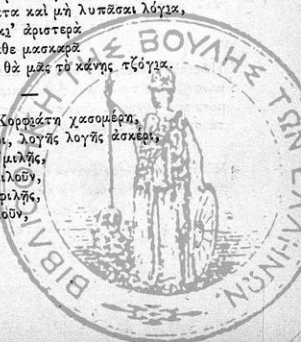 τα καὶ μὴ λυπᾶσαι λόγια,
κι' ἀριστερὰ
θε μασκαρᾶ
θὰ μᾶς τὸ κάνῃς τζόγια.
Κορφιάτη χασομέρη,
ι, λογῆς λογῆς ἀσκέρι,
μιλῇς,
ιλοῦν,
φιλῇς,
οῦν,
ΒΙΒΛΙΟΘΗΚΗ ΤΗΣ ΒΟΥΛΗΣ ΤΩΝ ΕΛΛΗΝΩΝ